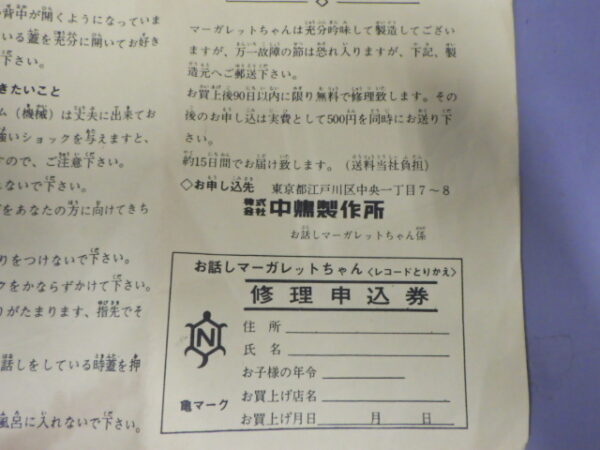 背中が開くようになっていま
いる蓋を充分に開いてお好き
下さい。
きたいこと
ム（機械）は丈夫に出来てお
強いショックを与えますと、
すので、ご注意下さい。
れないで下さい。
をあなたの方に向けてきち
りをつけないで下さい。
クをかならずかけて下さい。
りがたまります、指先でそ
話しをしている時蓋を押
風呂に入れないで下さい。
マーガレットちゃんは充分吟味して製造してござい
ますが、万一故障の節は恐れ入りますが、下記、製
造元へご郵送下さい。
お買上後90日以内に限り無料で修理致します。その
後のお申し込は実費として500円を同時にお送り下
さい。
約15日間でお届け致します。（送料当社負担）
◇お申し込先 東京都江戸川区中央一丁目7～8
株式会社 中嶋製作所
お話しマーガレットちゃん係
お話しマーガレットちゃん〈レコードとりかえ〉
修理申込券
N
亀マーク
住所
氏名
お子様の年令
お買上げ店名
お買上げ月日 月 日